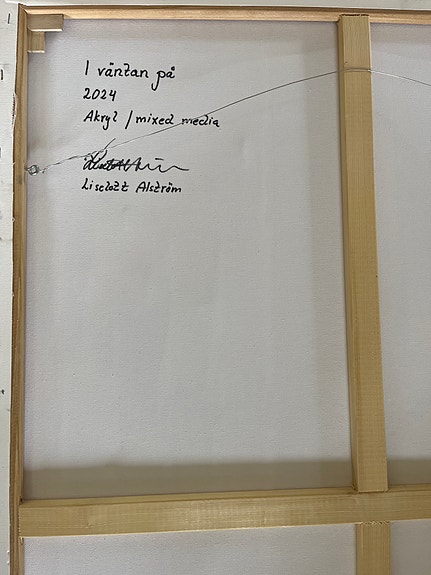 I väntan på
2024
Akryl / mixed media
Liselott Alström